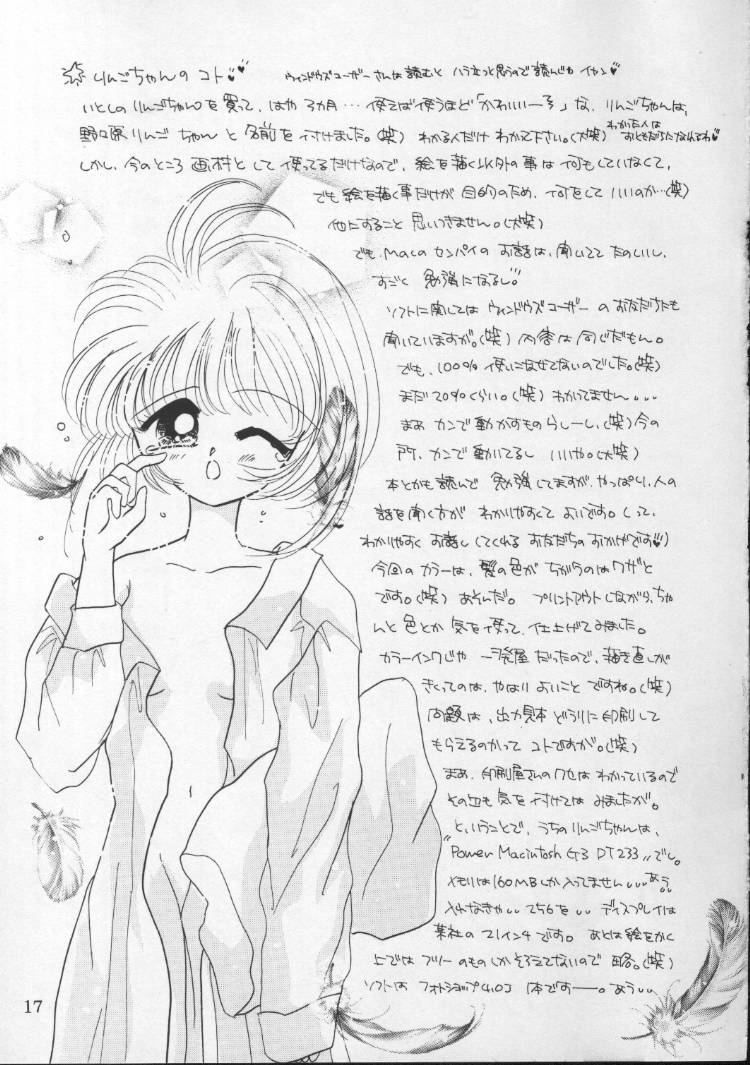 りんごちゃんの コト ウィンドウズユーザーさんは読むと ハラ立つと思うので 読んじゃ イヤン
いとしの りんごちゃんを 買って、はや 3カ月… 使えば使うほど「かわいいーっ」な、りんごちゃんは、
野々原りんご ちゃん と 名前 を 付けました。(笑) わかる人だけ わかって下さい。(大笑) わかった人は おともだちになれてね
しかし、今のところ 画材として 使ってるだけなので、絵を描く以外の事は 何もしていなくて、
でも 絵を描く事だけが 目的のため、何をして いいのか…(笑)
他にすること 思いつきません。(大笑)
でも、Macの センパイの お話は、聞いてて たのしいし、
すごく 勉強になるし。
ソフトに関しては ウィンドウズユーザー の お友だちにも
聞いていますが。(笑) 内容は 同じだもん。
でも、100% 使いこなせてないのでした。(笑)
まだ 20%くらい。(笑) わかってません...
まあ カンで 動かすもの らしーし、(笑) 今の
所、カンで 動いてるし いいや。(大笑)
本とかも 読んで 勉強してますが、やっぱり、人の
話を聞く方が わかりやすくて よいです。(って、
わかりやすく お話ししてくれる お友だちの おかげです)
今回の カラーは、髪の色が ちがうのは ワザと
です。(笑) あそんだ。 プリントアウトしながら、ちゃ
んと 色とか 気を使って、仕上げてみました。
カラーインクじゃ 一発屋 だったので、描き直しが
きくってのは、やはり よいこと ですね。(笑)
問題は、出力見本 どうりに 印刷して
もらえるのかって コトですが。(笑)
まあ、印刷屋さんのクセは わかっているので
その辺も 気を 付けては みましたが。
と、いうことで、うちの りんごちゃんは、
"Power Macintosh G3 DT233"でし。
メモリは 160MBしか入ってません... あう。
入れなきゃ.. 256を.. ディスプレイは
某社の 21インチ です。 あとは 絵をかく
上では フツーのものしか そろえてないので 略。(笑)
ソフトは フォトショップ4.0J 1本ですーー。あう..
17